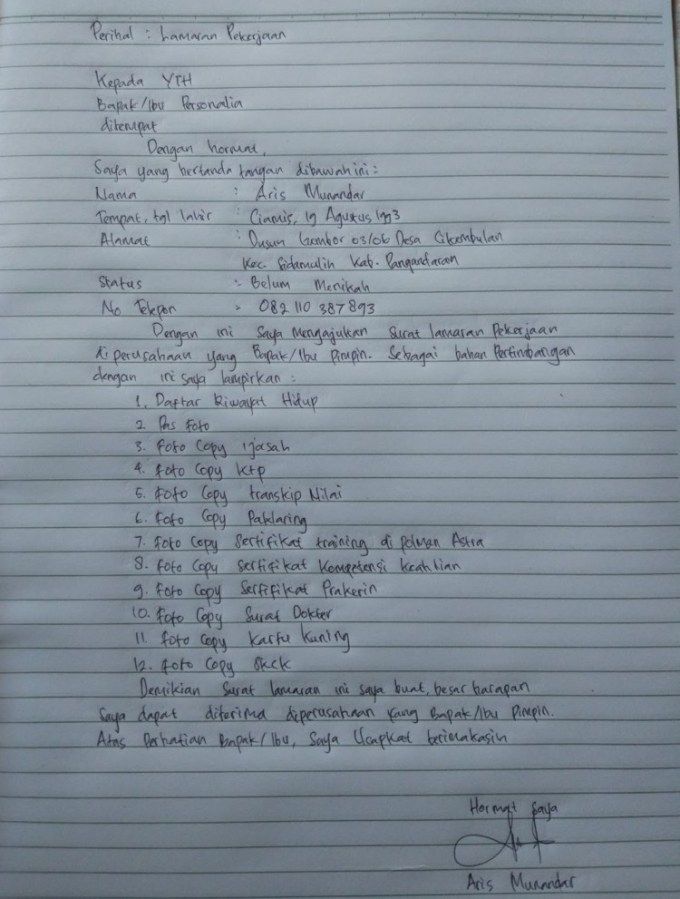 Perihal : Lamaran Pekerjaan
Kepada YTH
Bapak/Ibu Personalia
ditempat
Dengan hormat,
Saya yang bertanda tangan dibawah ini :
Nama : Aris Munandar
Tempat, tgl lahir : Ciamis, 19 Agustus 1993
Alamat : Dusun Gembor 03/06 Desa Cikembulan
Kec. Sidamulih Kab. Pangandaran
Status : Belum Menikah
No Telepon : 082 110 387 893
Dengan ini Saya Mengajukan Surat lamaran Pekerjaan
di perusahaan yang Bapak/Ibu Pimpin. Sebagai bahan Pertimbangan
dengan ini saya lampirkan :
1. Daftar Riwayat Hidup
2. Pas Foto
3. Foto Copy ijasah
4. Foto Copy ktp
5. Foto Copy transkip Nilai
6. Foto Copy Paklaring
7. Foto Copy Sertifikat training di polman Astra
8. Foto Copy Sertifikat Kompetensi keahlian
9. Foto Copy Sertifikat Prakerin
10. Foto Copy Surat Dokter
11. Foto Copy Kartu Kuning
12. Foto Copy Skck
Demikian Surat lamaran ini saya buat, besar harapan
Saya dapat diterima diperusahaan yang Bapak/Ibu Pimpin.
Atas Perhatian Bapak/Ibu, Saya Ucapkat terimakasih
Hormat Saya
Aris Munandar